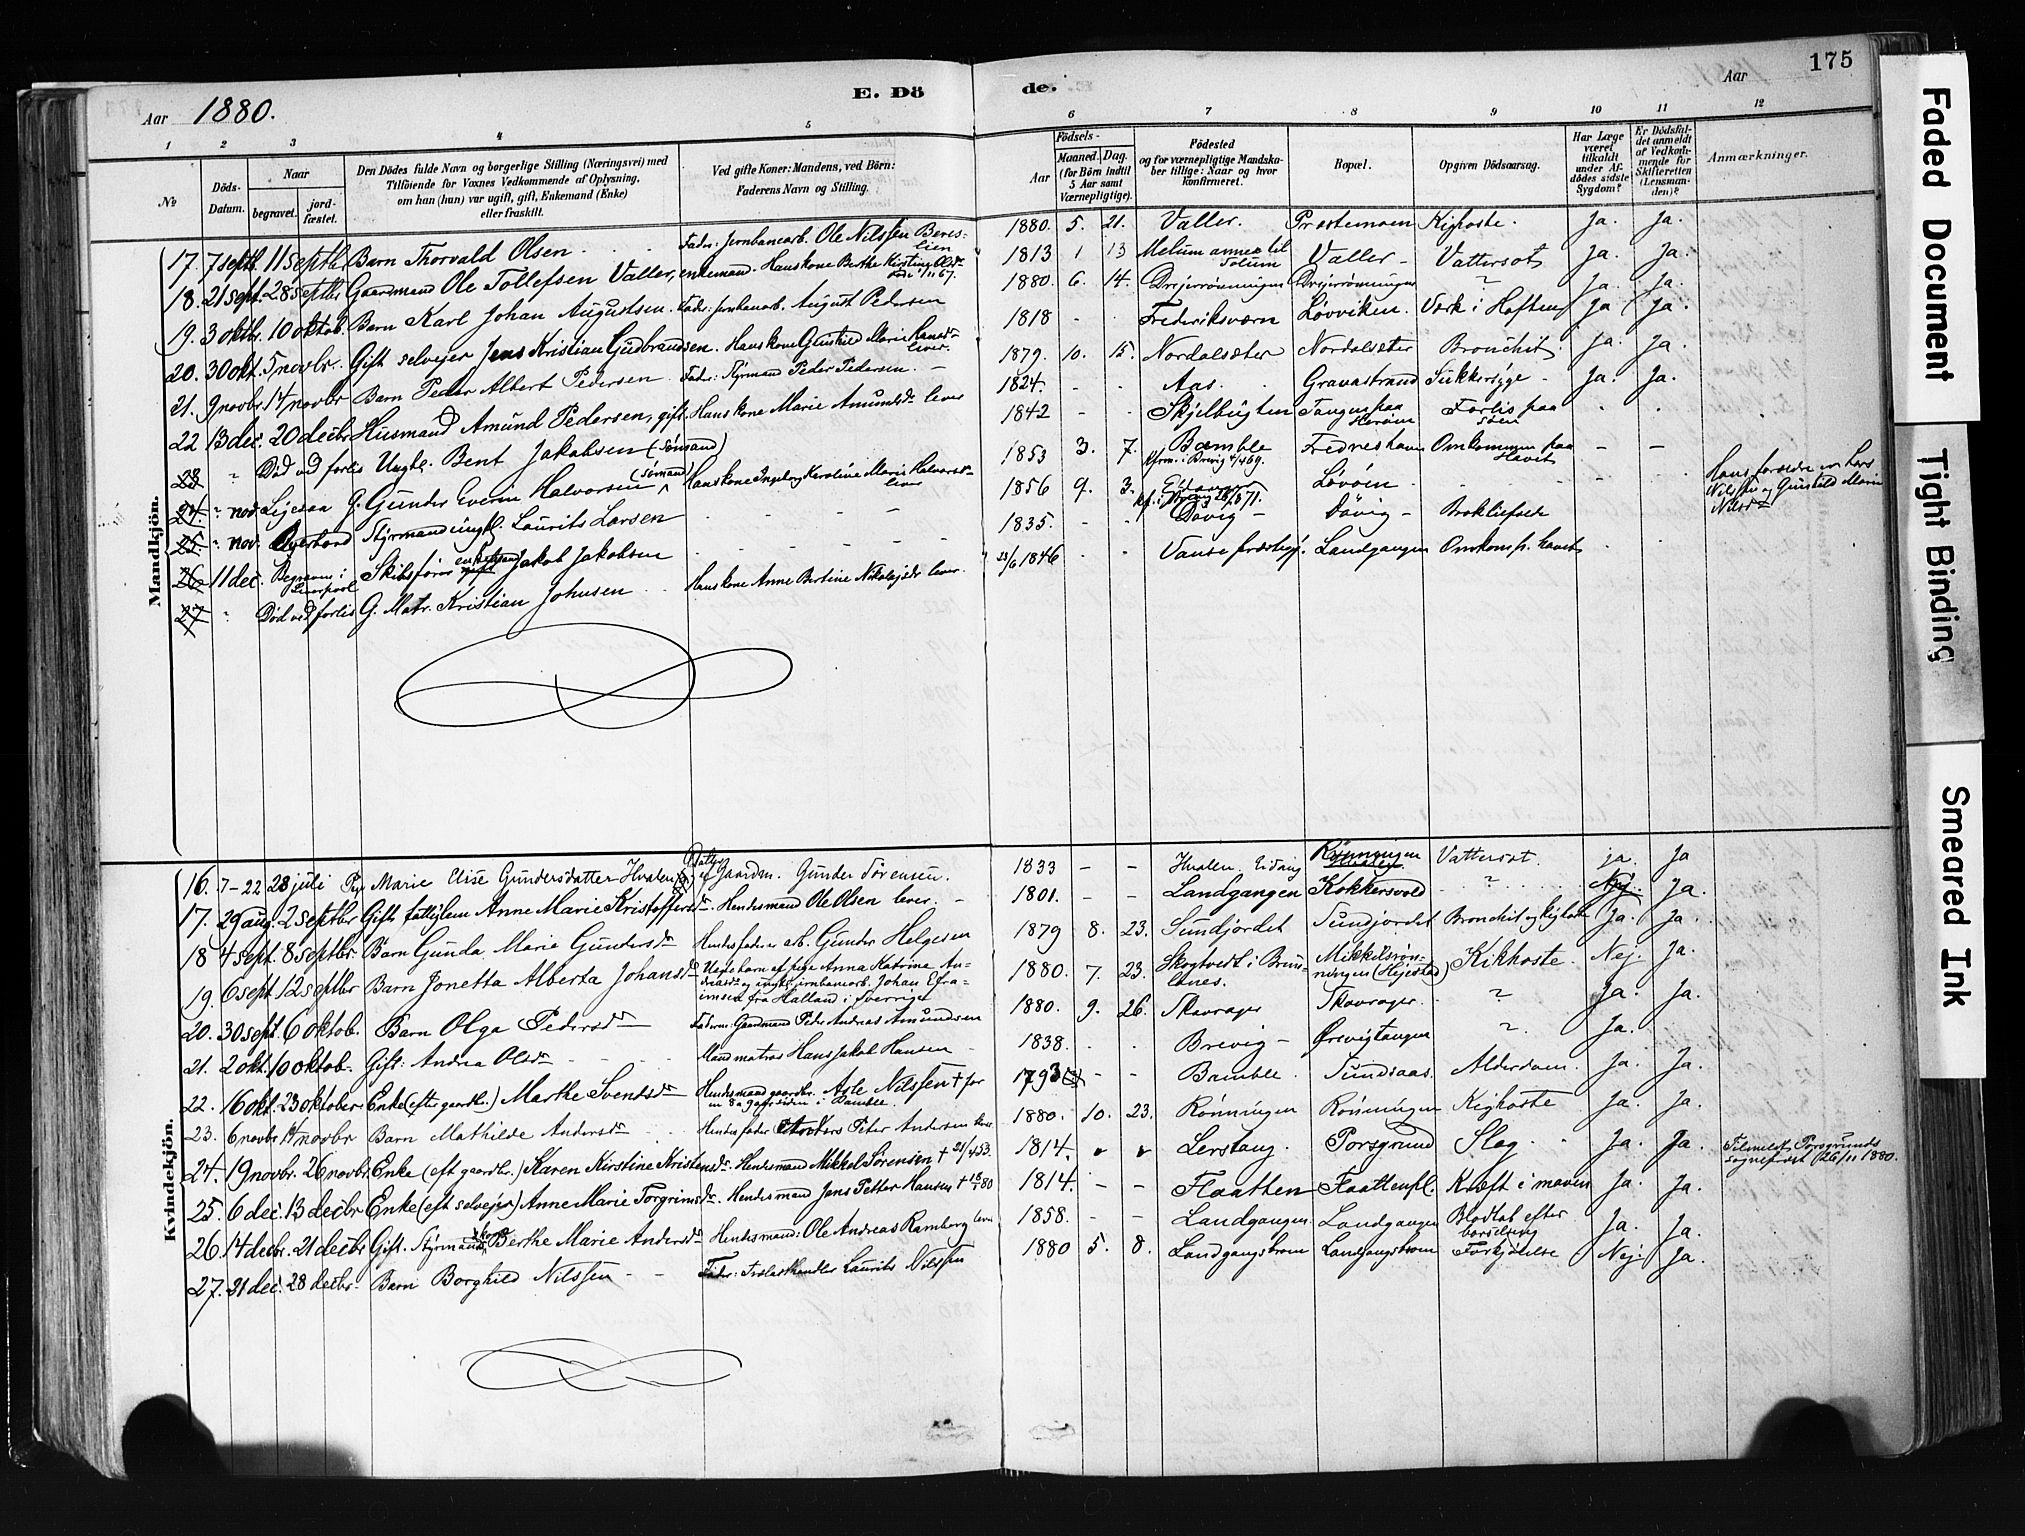 175
Aar 1880.
E. Dö
de.
Aar
1 2 3 4 5 6 7 8 9 10 11 12
No
Döds-Datum.
Naar
begravet.
jord-fæstet.
Den Dödes fulde Navn og borgerlige Stilling (Næringsvei) med
Tilföiende for Voxnes Vedkommende af Oplysning,
om han (hun) var ugift, gift, Enkemand (Enke)
eller fraskilt.
Ved gifte Koner: Mandens, ved Börn:
Faderens Navn og Stilling.
Födsels-
Aar
Maaned. Dag.
(for Börn indtil
5 Aar samt
Værnepligtige).
Födested
og for værnepligtige Mandska-
ber tillige: Naar og hvor
konfirmeret.
Bopæl.
Opgiven Dödsaarsag.
Har Læge
været
tilkaldt
under Af-
dödes sidste
Sygdom?
Er Dödsfal-
det anmeldt
af Vedkom-
mende for
Skifteretten
(Lensman-
den)?
Anmærkninger.
Mandkjön.
17. 7 septb. 11 septbr. Barn Thorvald Olsen. Fader: Jernbanearb. Ole Nilssen Beres-lien 1880. 5. 21. Valler. Præstemoen Kighoste. Ja. Ja.
18. 21 sept. 28 septbr Gaardmand Ole Tollefsen Valler, enkemand. Hans kone Berthe Kirstine Olsdr 1813 1 13 Melum annex til Solum Valler - Vattersot Ja. Ja.
19. 3 oktbr. 10 oktob. Barn Karl Johan Augustsen. Fader: Jernbanearb. August Pedersen 1880. 6. 14. Drejerrönningen Drejerrönningen " Ja. Ja.
20. 30 okt. 5 novbr. Gift selvejer Jens Kristian Gudbrandsen. Hans kone Gunhild Marie Hansdr lever. 1818 - Frederiksværn Lövviken. Værk i Hoften Ja Ja.
21. 9 novbr. 14 novbr Barn Peder Albert Pedersen. Fader: Styrmand Peder Pedersen. - 1879. 10. 15. Nordalsæter Nordalsæter Bronchit. Ja. Ja.
22 13 dec. 20 decbr. Husmand Amund Pedersen, gift. Hans kone Marie Amundsdr lever 1824. - - Aas. Gravastrand Sukkersyge - Ja. Ja.
23 " Död ved forlis Ungk. Bent Jakobsen (Sömand) 1842 - - Skjelbugten Tangen paa Heröen Forlis paa söen
24. " nov. Ligesaa G. Gunder Everin Halvorsen (Sömand) Hans kone Ingeborg Karoline Marie Halvorsdr lever 1853 3. 7. Bamble Kfrm. i Brevig 4/4 69. Fredneshavn Omkommen paa Havet - -
25. " nov. Styrmand ungk. Laurits Larsen 1856 9. 3. Lövöen. Hans forældre er Lars Nilssen og Gunhild Marie Nilsdr
26 11 dec. Begraven i Liverpool Skibsförer enkemand Jakob Jakobsen 1835. - Dövig - Dövig -
27 " Död ved forlis G. Matr. Kristian Johnsen Hans kone Anne Bertine Nikolajsdr lever. 23/6 1846 Vanse præstegj. Landgangen Omkom p. havet
Kvindekjön.
16. 7-22 28 juli Pige Marie Elise Gundersdatter Hvalen Datter af Gaardm. Gunder Sörensen. 1833 - - Hvalen, Eidang Rönningen Vattersot. ja. Ja
17. 29 aug. 2 septbr Gift fattiglem Anne Marie Kristoffersdr. Hendes mand Ole Olsen lever. - 1801. - - Landgangen Kokkersvold " Nej. Ja.
18 4 sept. 8 septbr. Barn Gunda Marie Gundersdr Hendes fader er arb. Gunder Helgesen 1879 8. 23. Sundjordet Sundjordet Bronchit og kighoste Ja. Ja.
19. 6 sept. 12 septbr Barn Jonetta Alberta Johansdr Uægte barn af pige Anna Katrine An-dreasdr og ungk. jernbanearb. Johan Efra-imsen fra Halland i Sverrige 1880. 7. 23. Skogtvedt i Brunlanes. Mikkelsrön-ningen (Hejestad) Kikhoste. Nej. Ja.
20. 30 sept. 6 oktob. Barn Olga Pedersdr Faderen: Gaardmand Peder Andreas Amundsen 1880. 9. 26. Skavrager Skavrager. " Ja. Ja.
21. 2 okt. 10 oktob. Gift. Andrea Olsdr - - Mand matros Hans Jakob Hansen - 1838. Brevig - Örevigtangen " Ja.
22. 16 okt. 23 oktober Enke (efter gaardbr.) Marthe Svendsdr Hendes mand gaardbr. Asle Nilssen † for en 8 a 9 aar siden i Bamble. 1793 - - Bamble. Sundsaas. Alderdom. Ja. Ja.
23. 6 novbr. 14 novbr Barn Mathilde Andersdr - Hendes fader Anders Peter Andersen 1880. 10. 23. Rönningen Rönningen Kighoste Ja. Ja.
24. 19 novbr. 26 novbr. Enke (eft gaardbr.) Karen Kirstine Kristensdr. Hendes mand Mikkel Sörensen † 21/4 53. 1814. " " Lerstang. Porsgrund Slag. Ja. Ja. Tilmeldt Porsgrunds sognepræst 26/11 1880.
25. 6 dec. 13 decbr. Enke (eft selvejer) Anne Marie Torgrimsdr. Hendes mand Jens Petter Hansen † 1814. - - Flaathen Flaattenpl. Kræft i maven Ja. Ja.
26. 14 decbr. 21 decbr. Gift. Styrmands kone Berthe Marie Andersdr Hendes mand: Ole Andreas Ramberg lever 1858. - - Landgangen Landgangen Blodtab efter barselseng Ja. Ja.
27. 21 dec. 28 decbr. Barn Borghild Nilssen - - Fader: Trælasthandler Laurits Nilssen 1880 5. 8. Landgangsbroen Landgangsbroen Forkjölelse Nej. Ja.
Faded Document
Tight Binding
Smeared Ink